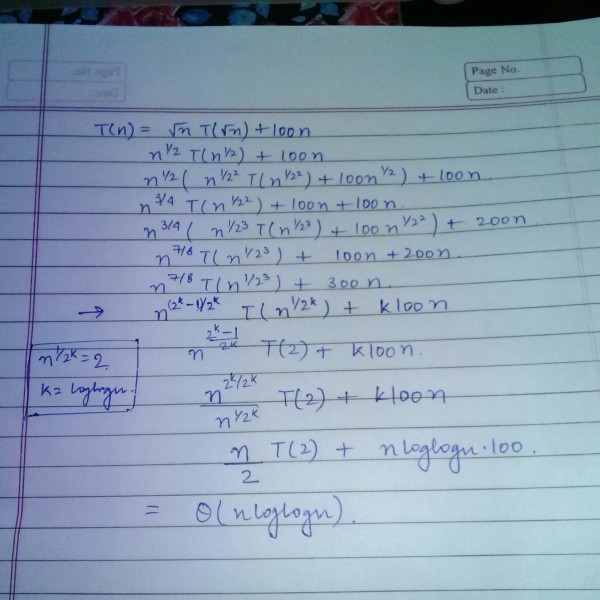 Page No.
Date :
T(n) = √n T(√n) + 100n
n^1/2 T(n^1/2) + 100n
n^1/2 ( n^1/2² T(n^1/2²) + 100n^1/2 ) + 100n
n^3/4 T(n^1/2²) + 100n + 100n.
n^3/4 ( n^1/2³ T(n^1/2³) + 100 n^1/2² ) + 200n
n^7/8 T(n^1/2³) + 100n + 200n.
n^7/8 T(n^1/2³) + 300n.
→ n^(2^k-1)/2^k T(n^1/2^k) + k100n
n^1/2^k = 2.
k = loglogn.
n^(2^k-1)/2^k T(2) + k100n.
n^2^k/2^k / n^1/2^k T(2) + k100n
n/2 T(2) + nloglogn·100.
= Θ(nloglogn).